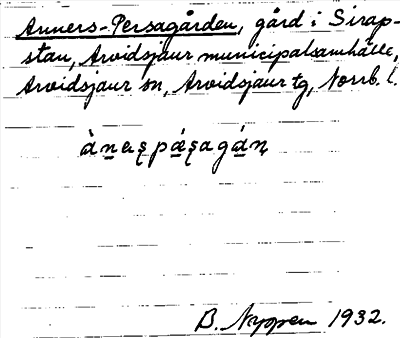 Anners-Persagården, gård i Sirap-
stan, Arvidsjaur municipalsamhälle,
Arvidsjaur sn, Arvidsjaur tg, Norrb. l.
B. Nyppen 1932.